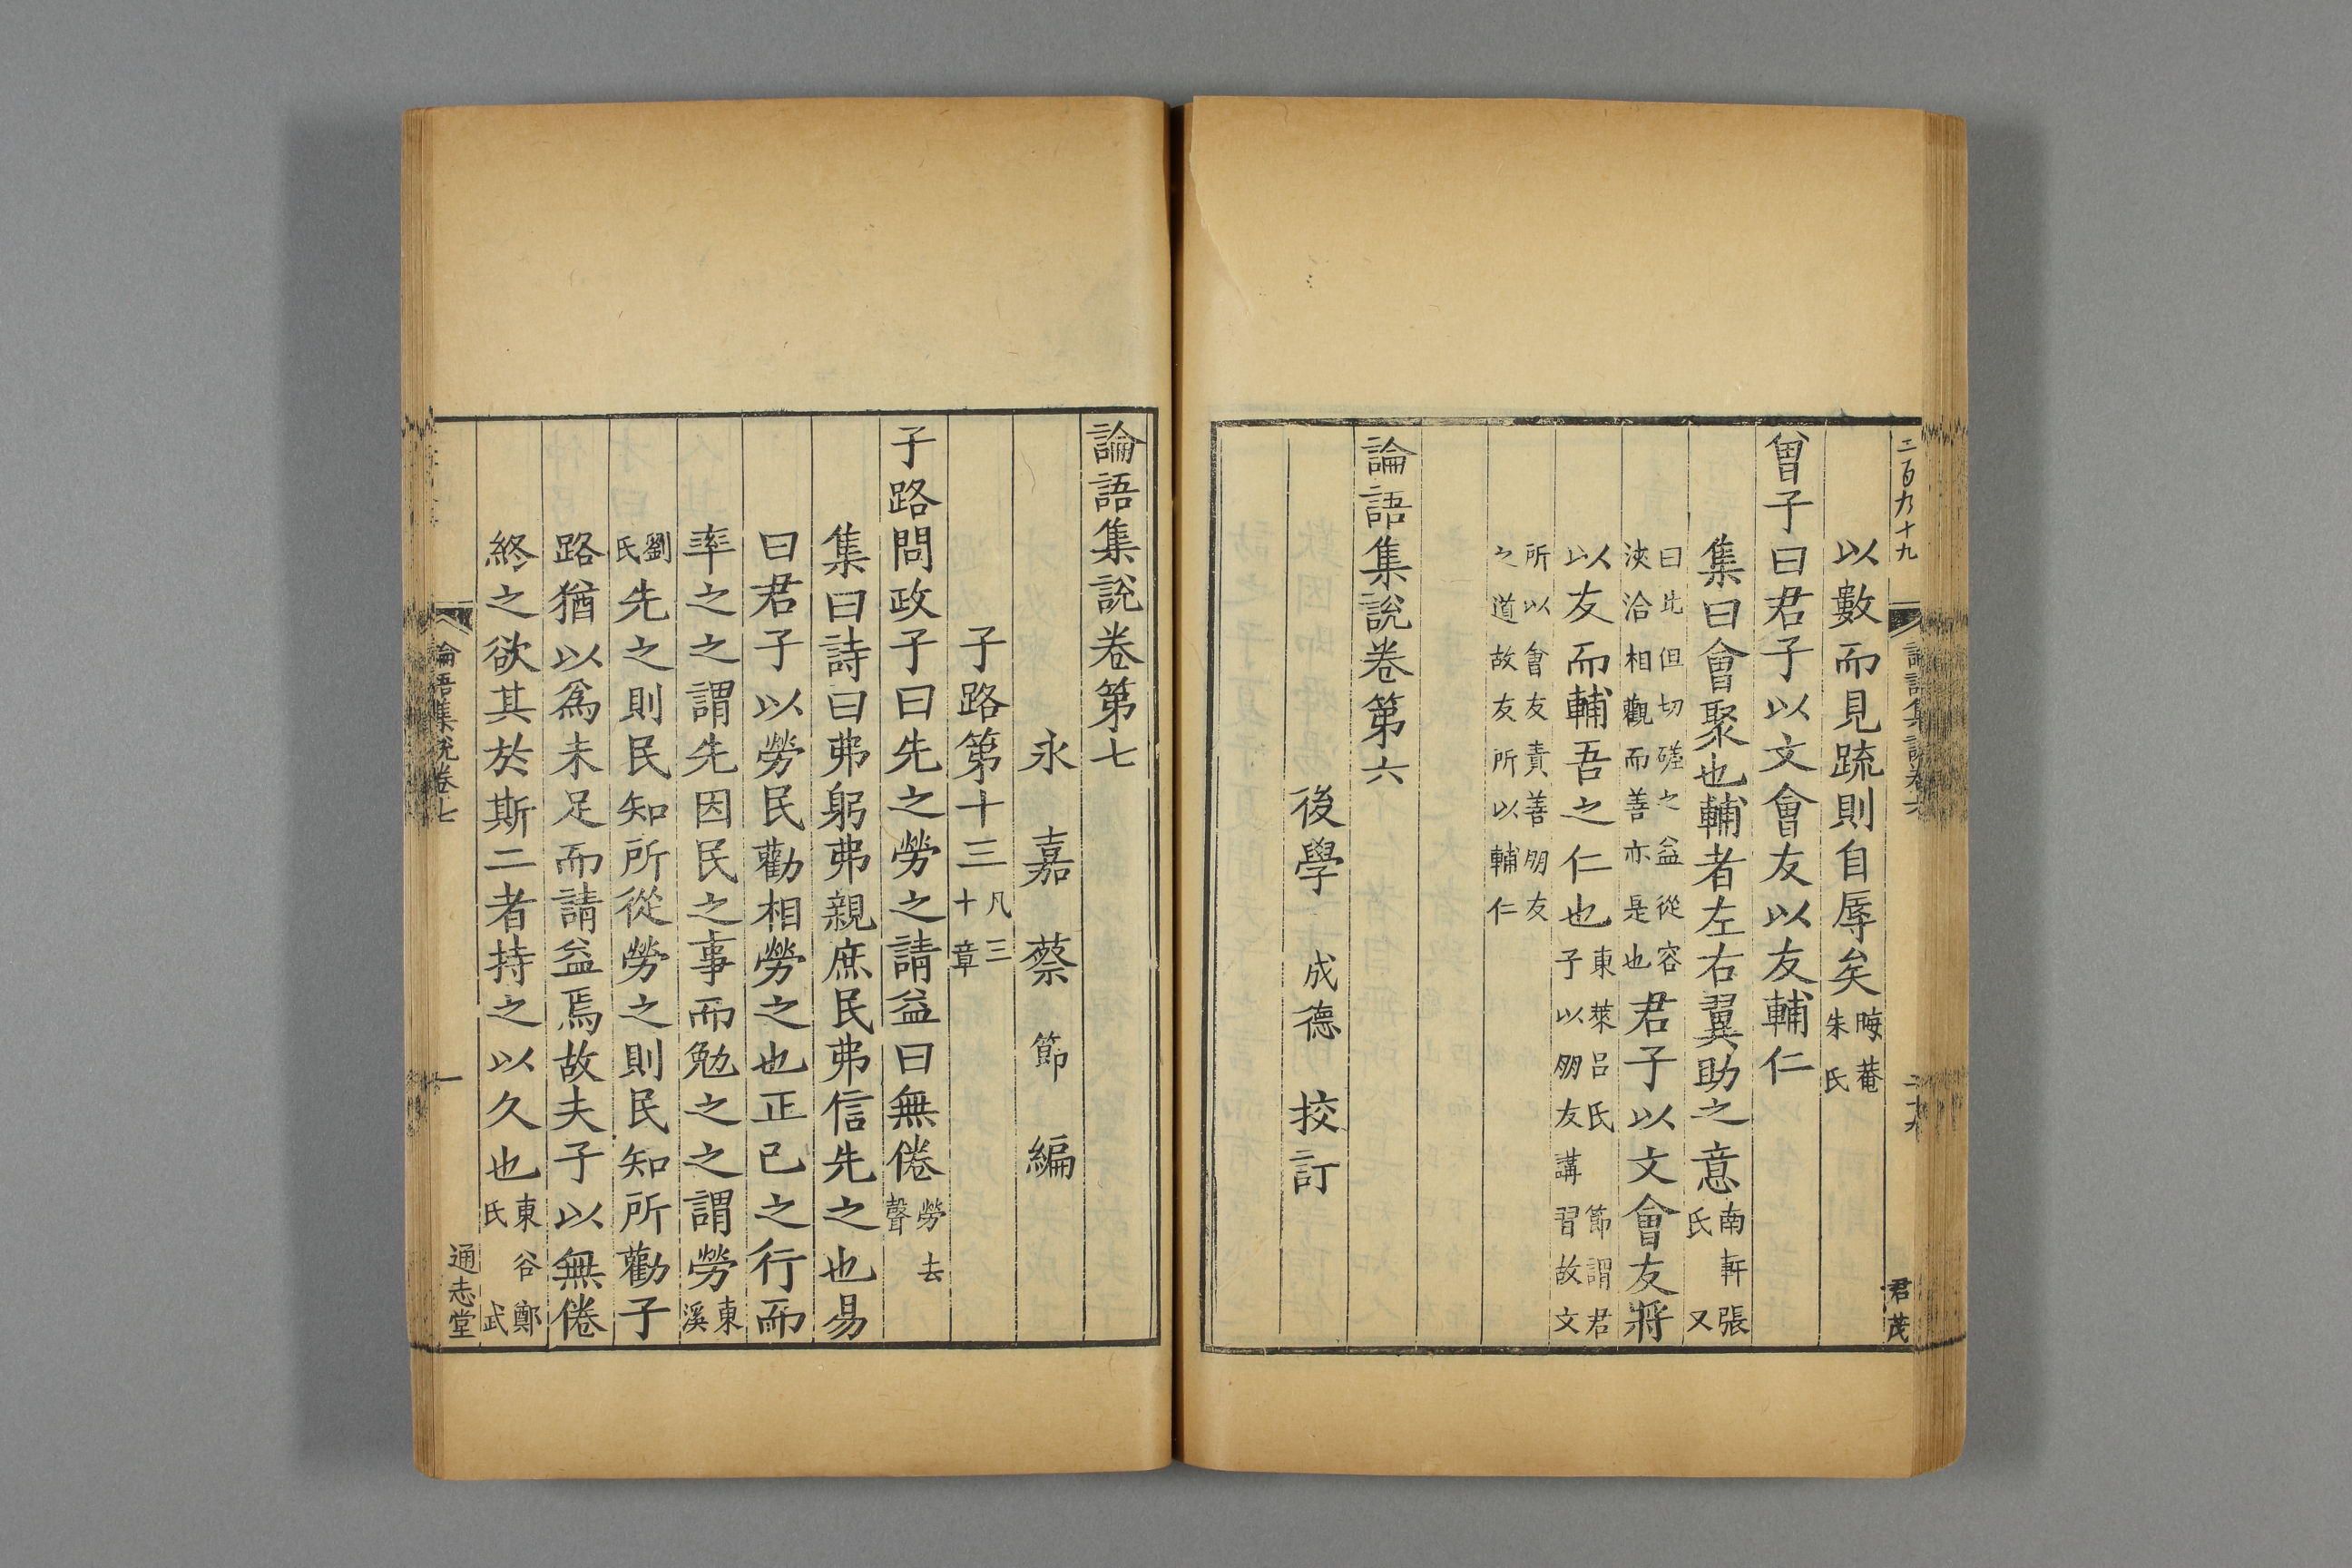 二百九十九
以數而見疏則自辱矣晦菴朱氏
曾子曰君子以文會友以友輔仁
集曰會聚也輔者左右翼助之意南軒張氏又
曰此但切磋之益從容浹洽相觀而善亦是也君子以文會友將
以友而輔吾之仁也東萊呂氏子以朋友講習故文節謂君
所以會友責善朋友之道故友所以輔仁
論語集說卷第六
後學成德校訂
君茂
論語集說卷第七
永嘉蔡節編
子路第十三凡三十章
子路問政子曰先之勞之請益曰無倦勞去聲
集曰詩曰弗躬弗親庶民弗信先之也易
曰君子以勞民勸相勞之也正己之行而
率之之謂先因民之事而勉之之謂勞東溪
劉氏先之則民知所從勞之則民知所勸子
路猶以為未足而請益焉故夫子以無倦
終之欲其於斯二者持之以久也東谷鄭氏武
論語集說卷七
一
通志堂